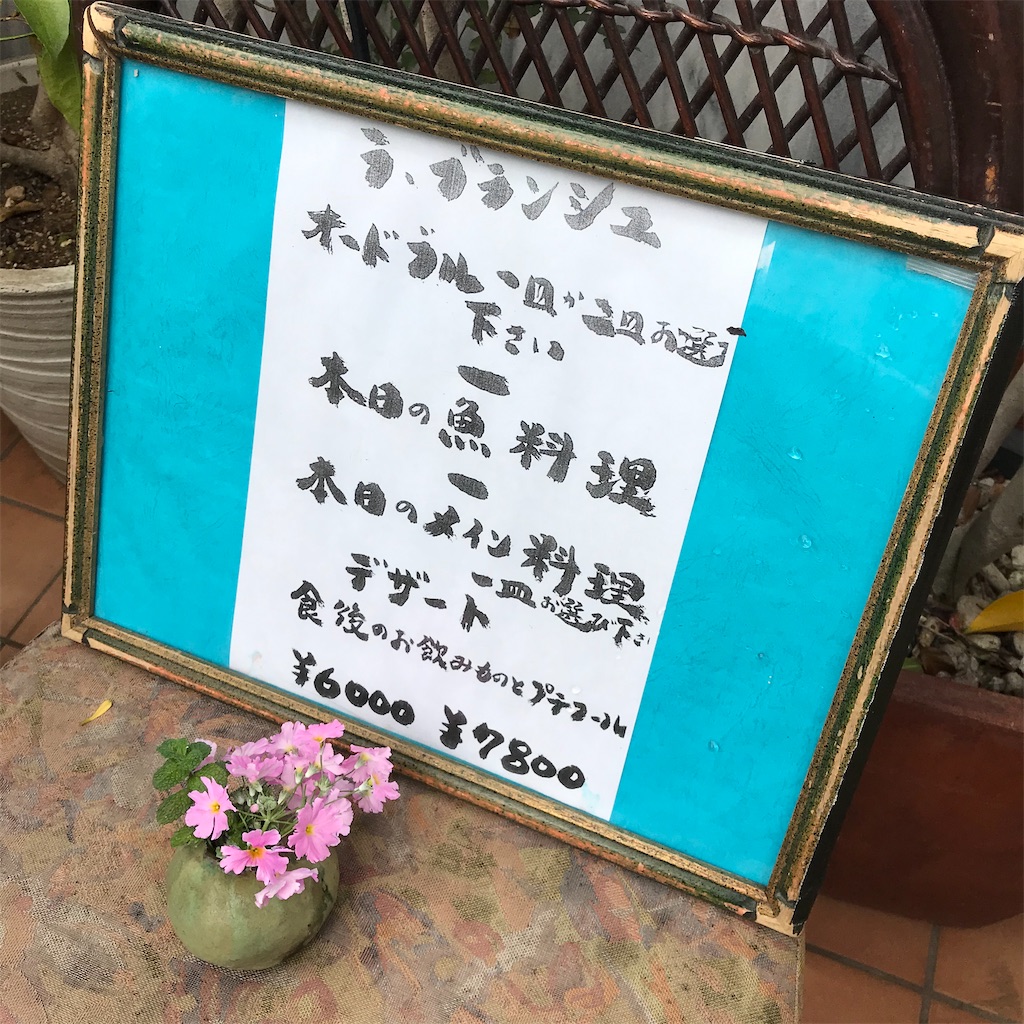 ラ、ブランシュ
オードブル 一皿か二皿お選び
下さい
ー
本日の魚料理
ー
本日のメイン料理
一皿お選び下さい
デザート
食後のお飲みものとプティフール
¥6000 ¥7800